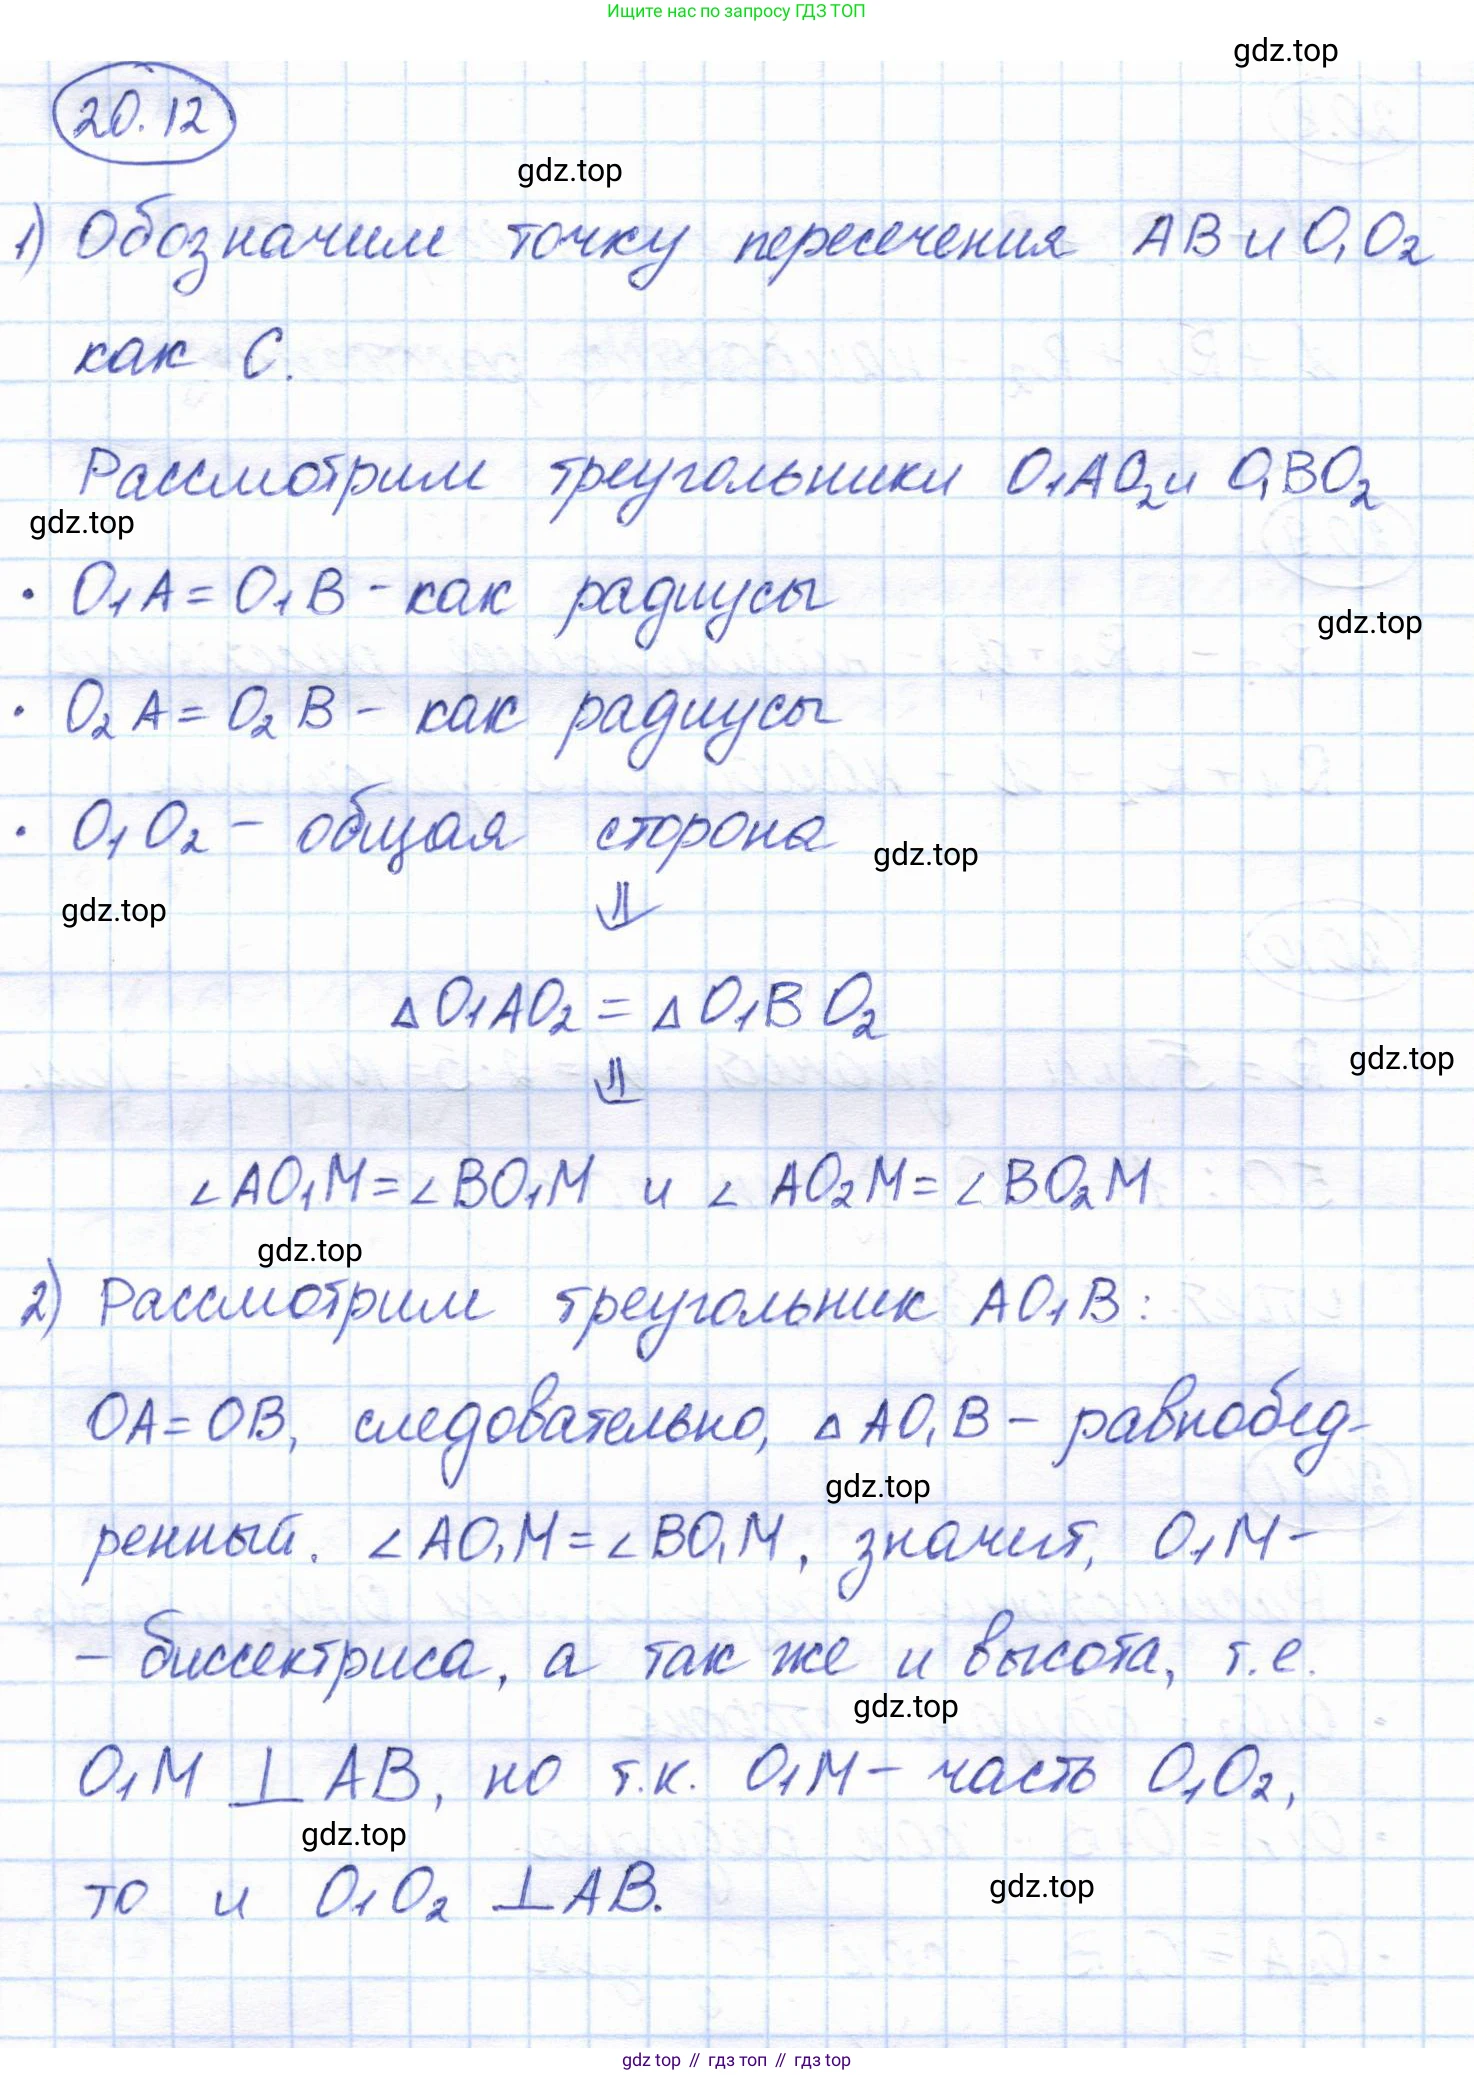 Ищите нас по запросу ГДЗ ТОП
gdz.top
20.12
gdz.top
1) Обозначим точку пересечения AB и O₁O₂
как C.
Рассмотрим треугольники O₁AO₂ и O₁BO₂
gdz.top
· O₁A = O₁B - как радиусы
gdz.top
· O₂A = O₂B - как радиусы
· O₁O₂ - общая сторона
gdz.top
⇓
gdz.top
△O₁AO₂ = △O₁BO₂
gdz.top
⇓
∠AO₁M = ∠BO₁M и ∠AO₂M = ∠BO₂M
gdz.top
2) Рассмотрим треугольник AO₁B:
OA = OB, следовательно, △AO₁B - равнобед-
gdz.top
ренный. ∠AO₁M = ∠BO₁M, значит, O₁M -
- биссектриса, а так же и высота, т.е.
gdz.top
O₁M ⊥ AB, но т.к. O₁M - часть O₁O₂,
gdz.top
то и O₁O₂ ⊥ AB.
gdz.top
gdz top // гдз топ // гдз top